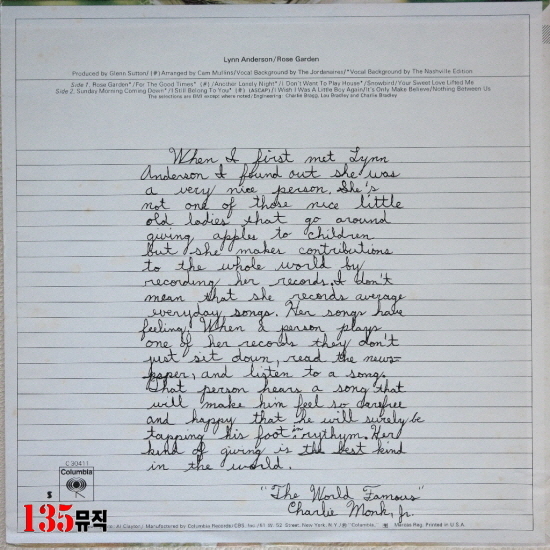 Lynn Anderson/Rose Garden
Produced by Glenn Sutton/(#)Arranged by Cam Mullins/Vocal Background by The Jordanaires/*Vocal Background by The Nashville Edition
Side 1. Rose Garden*/For The Good Times* (#)/Another Lonely Night*/I Don't Want To Play House*/Snowbird/Your Sweet Love Lifted Me
Side 2. Sunday Morning Coming Down*/I Still Belong To You* (#) (ASCAP)/I Wish I Was A Little Boy Again/It's Only Make Believe/Nothing Between Us
The selections are BMI except where noted/Engineering: Charlie Bragg, Lou Bradley and Charlie Bradley
When I first met Lynn
Anderson I found out she was
a very nice person. She's
not one of those nice little
old ladies that go around
giving apples to children
but she makes contributions
to the whole world by
recording her records. I don't
mean that she records average
everyday songs. Her songs have
feeling. When a person plays
one of her records they don't
just sit down, read the news=
paper, and listen to a song.
That person hears a song that
will make him feel so carefree
and happy that he will surely be
tapping his foot in rythym. Her
kind of giving is the best kind
in the world.
"The World Famous"
Charlie Monk, Jr.
C 30411
Columbia
S
135뮤직
Al Clayton/ Manufactured by Columbia Records/CBS, Inc./51 W. 52 Street, New York, N.Y./® "Columbia," Marcas Reg. Printed in U.S.A.